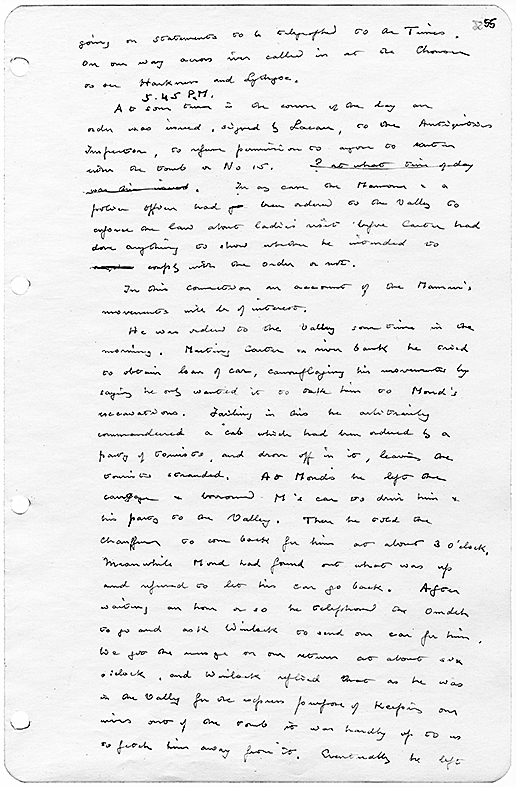 55
giving on statements to be telegraphed to the Times.
On our way across river called in at the Chevrier
to see Harkness and Lythgoe.
5.45 P.M.
At some time in the course of the day an
order was issued, signed by Lacau, to the Antiquities
Inspector, to refuse permission to anyone to enter
either the tomb or No 15. ? at what time of day
was this issued. In any case the Mamour & a
police officer had been ordered to the Valley to
enforce the law about ladies visit before Carter had
done anything to show whether he intended to
comply with the order or not.
In this connection an account of the Mamur's
movements will be of interest.
He was ordered to the Valley some time in the
morning. Meeting Carter on river bank he tried
to obtain loan of car, camouflaging his movements by
saying he only wanted it to take him to Mond's
excavations. Failing in this he arbitrarily
commandeered a cab which had been ordered by a
party of tourists, and drove off in it, leaving the
tourists stranded. At Mond's he left the
carriage & borrowed M's car to drive him &
his party to the Valley. There he told the
chauffeur to come back for him at about 3 o'clock.
Meanwhile Mond had found out what was up
and refused to let his car go back. After
waiting an hour or so he telephoned the Omdeh
to go and ask Winlock to send our car for him.
We got the message on our return at about six
o'clock, and Winlock replied that as he was
in the Valley for the express purpose of keeping our
wives out of the tomb it was hardly up to us
to fetch him away from it. Eventually he left